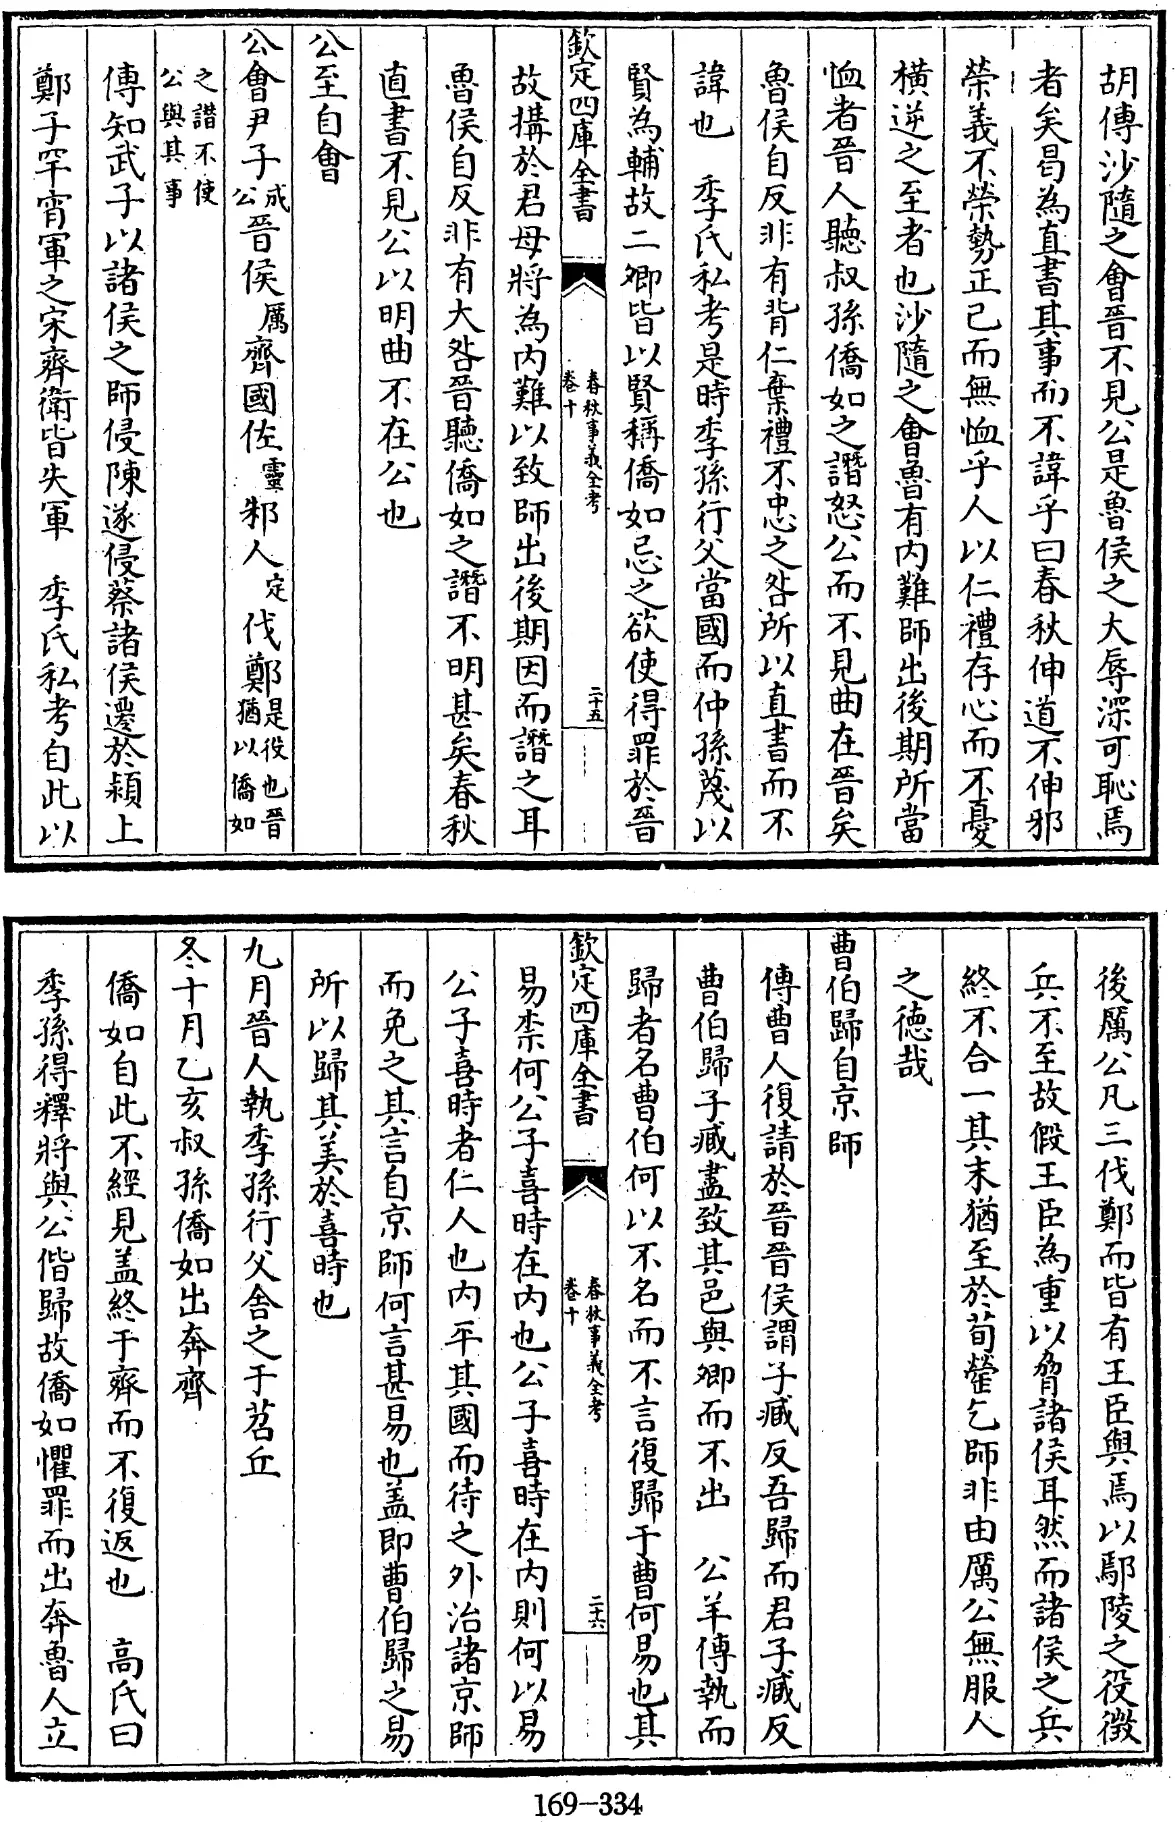 胡傳沙隨之會晉不見公是魯侯之大辱深可恥焉
者矣曷為直書其事而不諱乎曰春秋伸道不伸邪
榮義不榮勢正已而無恤乎人以仁禮存心而不憂
橫逆之至者也沙隨之會魯有内難師出後期所當
恤者晉人聽叔孫僑如之譖怒公而不見曲在晉矣
魯侯自反非有背仁棄禮不忠之咎所以直書而不
諱也　季氏私考是時季孫行父當國而仲孫蔑以
賢為輔故二卿皆以賢稱僑如忌之欲使得罪於晉
欽定四庫全書
春秋事義全考
卷十
二十五
故搆於君母將為内難以致師出後期因而譖之耳
魯侯自反非有大咎晉聽僑如之譖不明甚矣春秋
直書不見公以明曲不在公也
公至自會
公會尹子成公晉侯厲齊國佐靈邾人定伐鄭是役也晉猶以僑如
之譖不使公與其事
傳知武子以諸侯之師侵陳遂侵蔡諸侯遷於潁上
鄭子罕宵軍之宋齊衛皆失軍　季氏私考自此以
後厲公凡三伐鄭而皆有王臣與焉以鄢陵之役徵
兵不至故假王臣為重以脅諸侯耳然而諸侯之兵
終不合一其末猶至於荀罃乞師非由厲公無服人
之德哉
曹伯歸自京師
傳曹人復請於晉晉侯謂子臧反吾歸而君子臧反
曹伯歸子臧盡致其邑與卿而不出　公羊傳執而
歸者名曹伯何以不名而不言復歸于曹何易也其
欽定四庫全書
春秋事義全考
卷十
二十六
易柰何公子喜時在内也公子喜時在内則何以易
公子喜時者仁人也内平其國而待之外治諸京師
而免之其言自京師何言甚易也盖即曹伯歸之易
所以歸其美於喜時也
九月晉人執季孫行父舎之于苕丘
冬十月乙亥叔孫僑如出奔齊
僑如自此不經見盖終于齊而不復返也　高氏曰
季孫得釋將與公偕歸故僑如懼罪而出奔魯人立
169-334